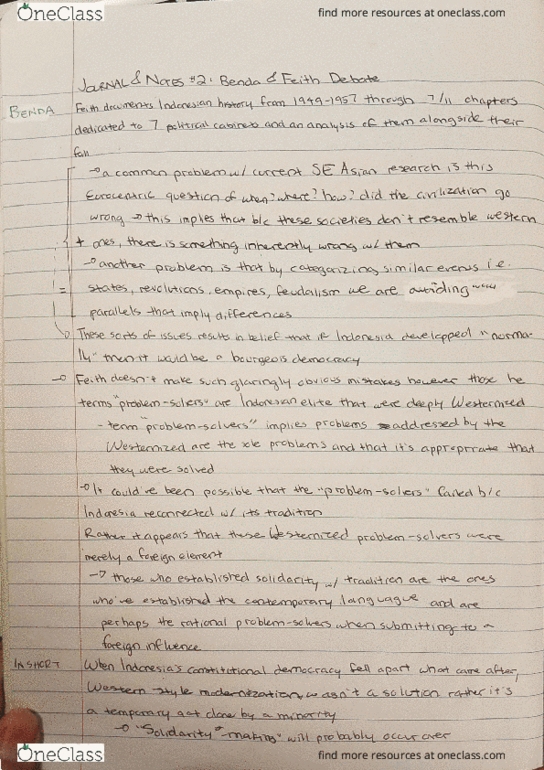 OneClass
find more resources at oneclass.com
JOURNAL & NOTES #2: Benda & Feith Debate
BENDA
Feith documents Indonesian history from 1949-1957 through 7/11 chapters
dedicated to 7 political cabinets and an analysis of them alongside their
fall
→ a common problem w/ current SE Asian research is this
Eurocentric question of when? where? how? did the civilization go
wrong → this implies that b/c these societies don't resemble western
+ ones, there is something inherently wrong w/ them
→ another problem is that by categorizing similar events i.e.
= states, revolutions, empires, feudalism we are avoiding
parallels that imply differences
↳ These sorts of issues results in belief that if Indonesia developped "norma-
lly" then it would be a bourgeois democracy
→ Feith doesn't make such glaringly obvious mistakes however those he
terms "problem-solvers" are Indonesian elite that were deeply Westernized
- term "problem-solvers" implies problems addressed by the
Westernized are the sole problems and that it's appropriate that
they were solved
→ It could've been possible that the "problem-solvers" failed b/c
Indonesia reconnected w/ its tradition
Rather it appears that these Westernized problem-solvers were
merely a foreign element
→ those who established solidarity w/ tradition are the ones
who've established the contemporary language and are
perhaps the rational problem-solvers when submitting to a
foreign influence
IN SHORT
When Indonesia's constitutional democracy fell apart what came after,
Western style modernization, wasn't a solution rather it's
a temporary act done by a minority
→ "Solidarity-making" will probably occur over
OneClass
find more resources at oneclass.com